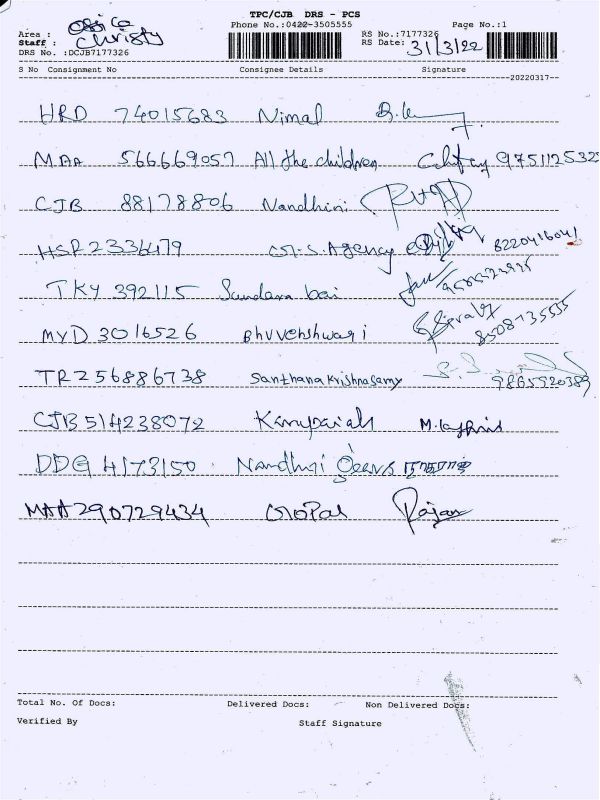 TPC/CJB DRS - PCS
Phone No.:0422-3505555 Page No.:1
Area : Office
Staff : Christy
RS No.:7177326
RS Date: 31/3/22
DRS No. :DCJB7177326
S No Consignment No Consignee Details Signature
20220317
HRD 74015683 Nimal
MAA 566669057 All the children 9751125325
CJB 88178806 Nandhini
HSR2336479 G.S. Agency 8220416041
TKY 392115 Sundara bai
MYD 3016526 Bhuveshwari 8508735535
TR256886738 Santhanakrishnasamy 9865920389
CJB514238072 Karupaiah
DDG 4173150 Nandhini
MAA290729434 Gopal Rajan
Total No. Of Docs: Delivered Docs: Non Delivered Docs:
Verified By Staff Signature